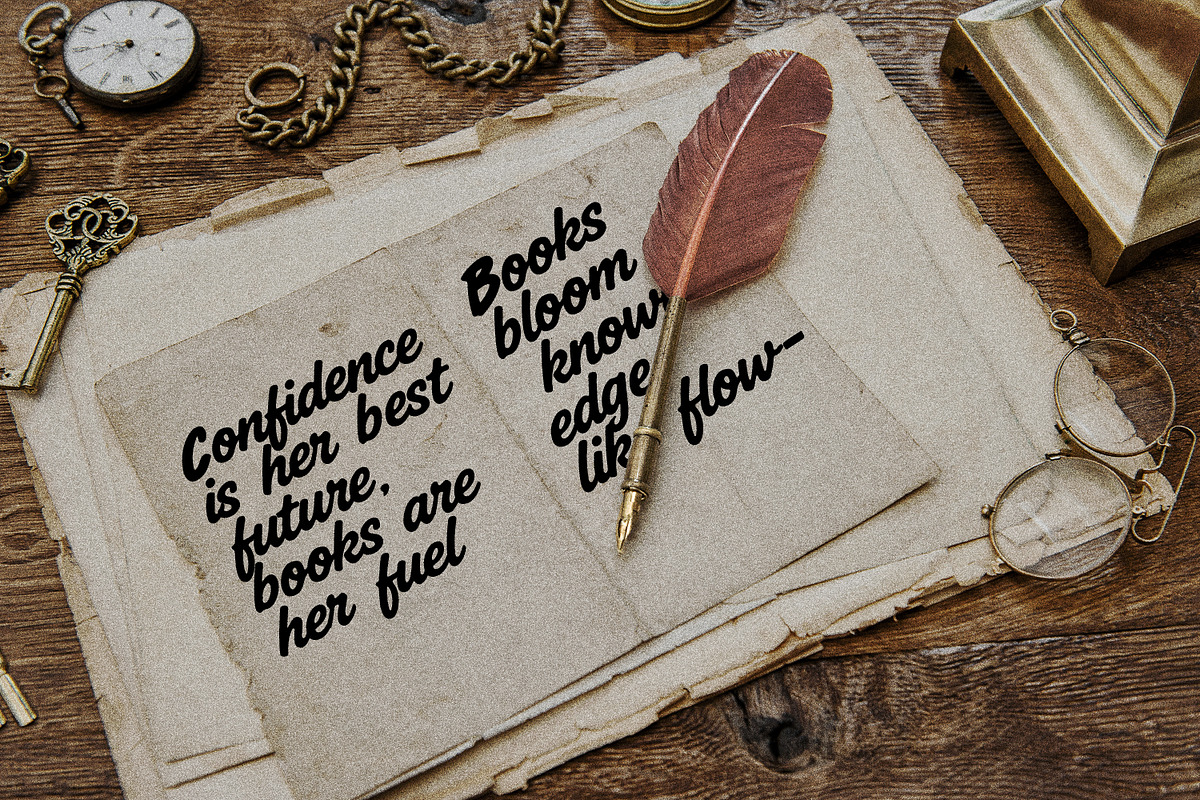 Confidence
is her best
future,
books are
her fuel
Books
bloom
know-
edge
like flow-